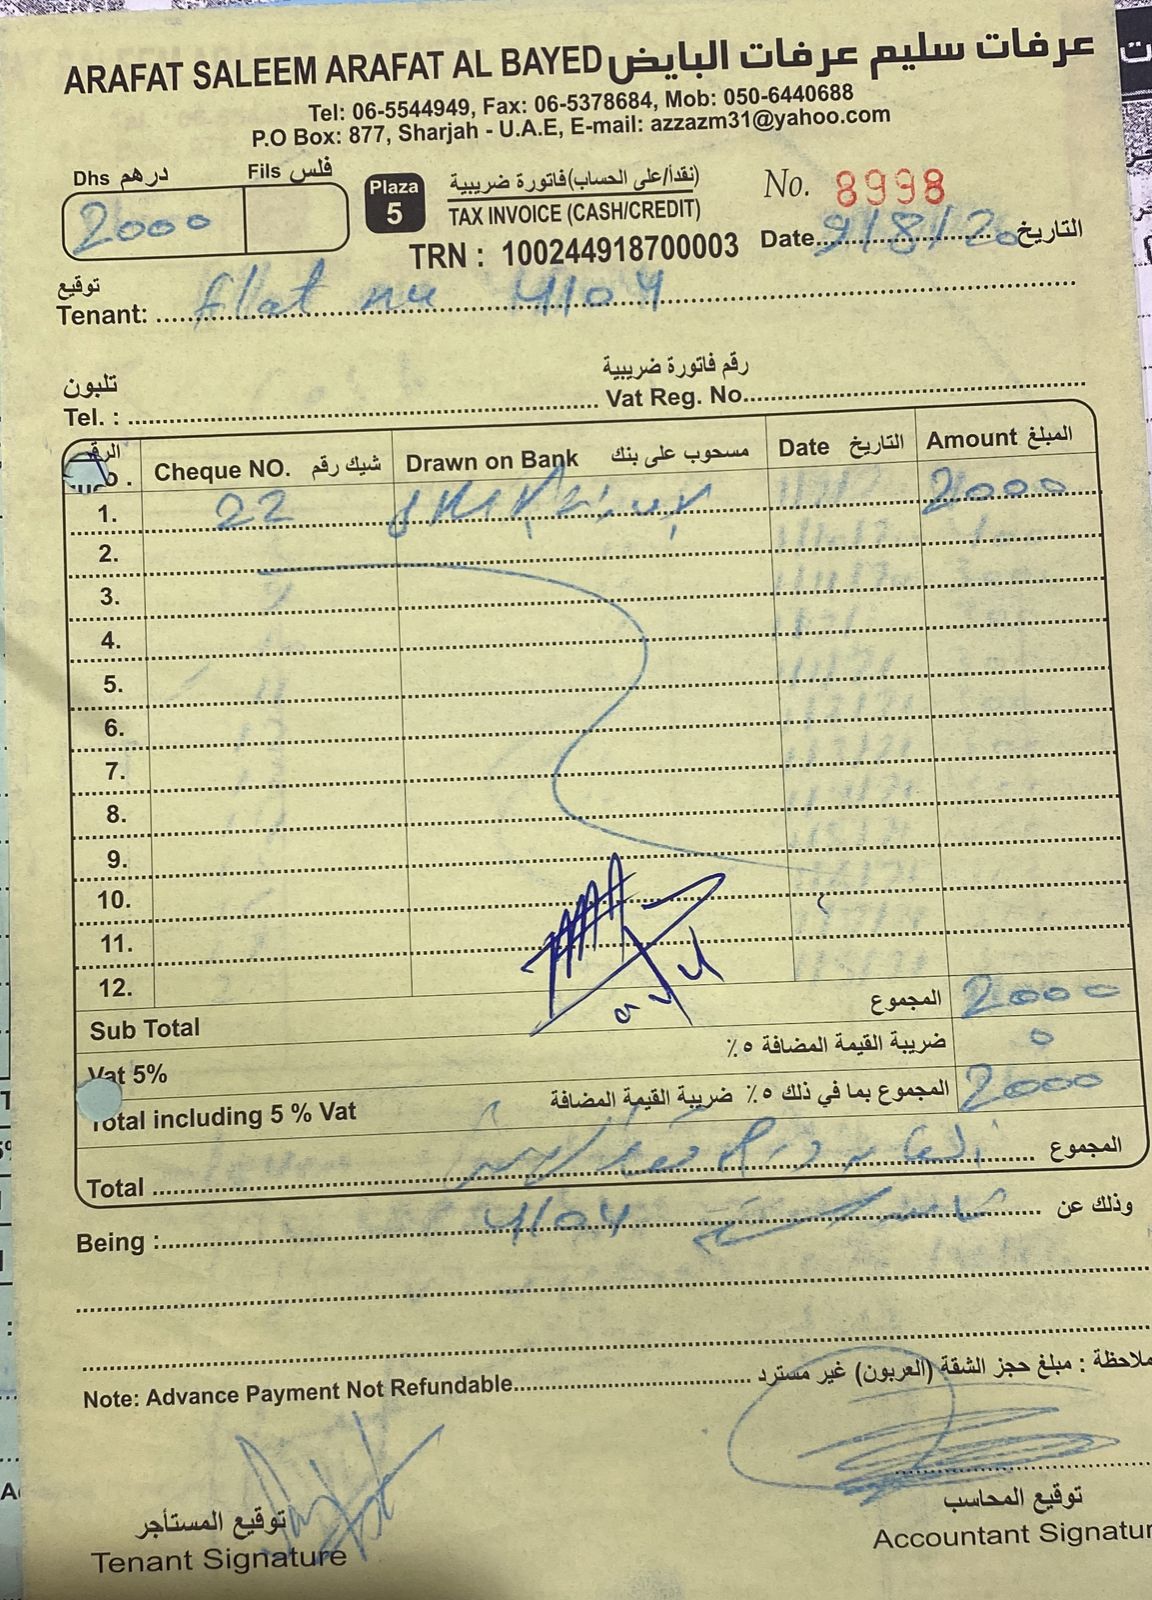 ARAFAT SALEEM ARAFAT AL BAYED عرفات سليم عرفات البايض
Tel: 06-5544949, Fax: 06-5378684, Mob: 050-6440688
P.O Box: 877, Sharjah - U.A.E, E-mail: azzazm31@yahoo.com
Dhs درهم Fils فلس
2000
Plaza 5
(نقدأ/على الحساب) فاتورة ضريبية
TAX INVOICE (CASH/CREDIT)
No. 8998
TRN : 100244918700003
Date 9/8/20 التاريخ
توقيع
Tenant: flat nu 4104
تلبون
رقم فاتورة ضريبية
Tel. : Vat Reg. No.
الرقم Cheque NO. شيك رقم Drawn on Bank مسحوب على بنك Date التاريخ Amount المبلغ
1. 22 2000
2.
3.
4.
5.
6.
7.
8.
9.
10.
11.
12.
Sub Total المجموع 2000
Vat 5% ضريبة القيمة المضافة ٥٪ 0
Total including 5 % Vat المجموع بما في ذلك ٥٪ ضريبة القيمة المضافة 2000
Total المجموع
Being : 4104 وذلك عن
Note: Advance Payment Not Refundable ملاحظة : مبلغ حجز الشقة (العربون) غير مسترد
توقيع المستأجر
Tenant Signature
توقيع المحاسب
Accountant Signatur